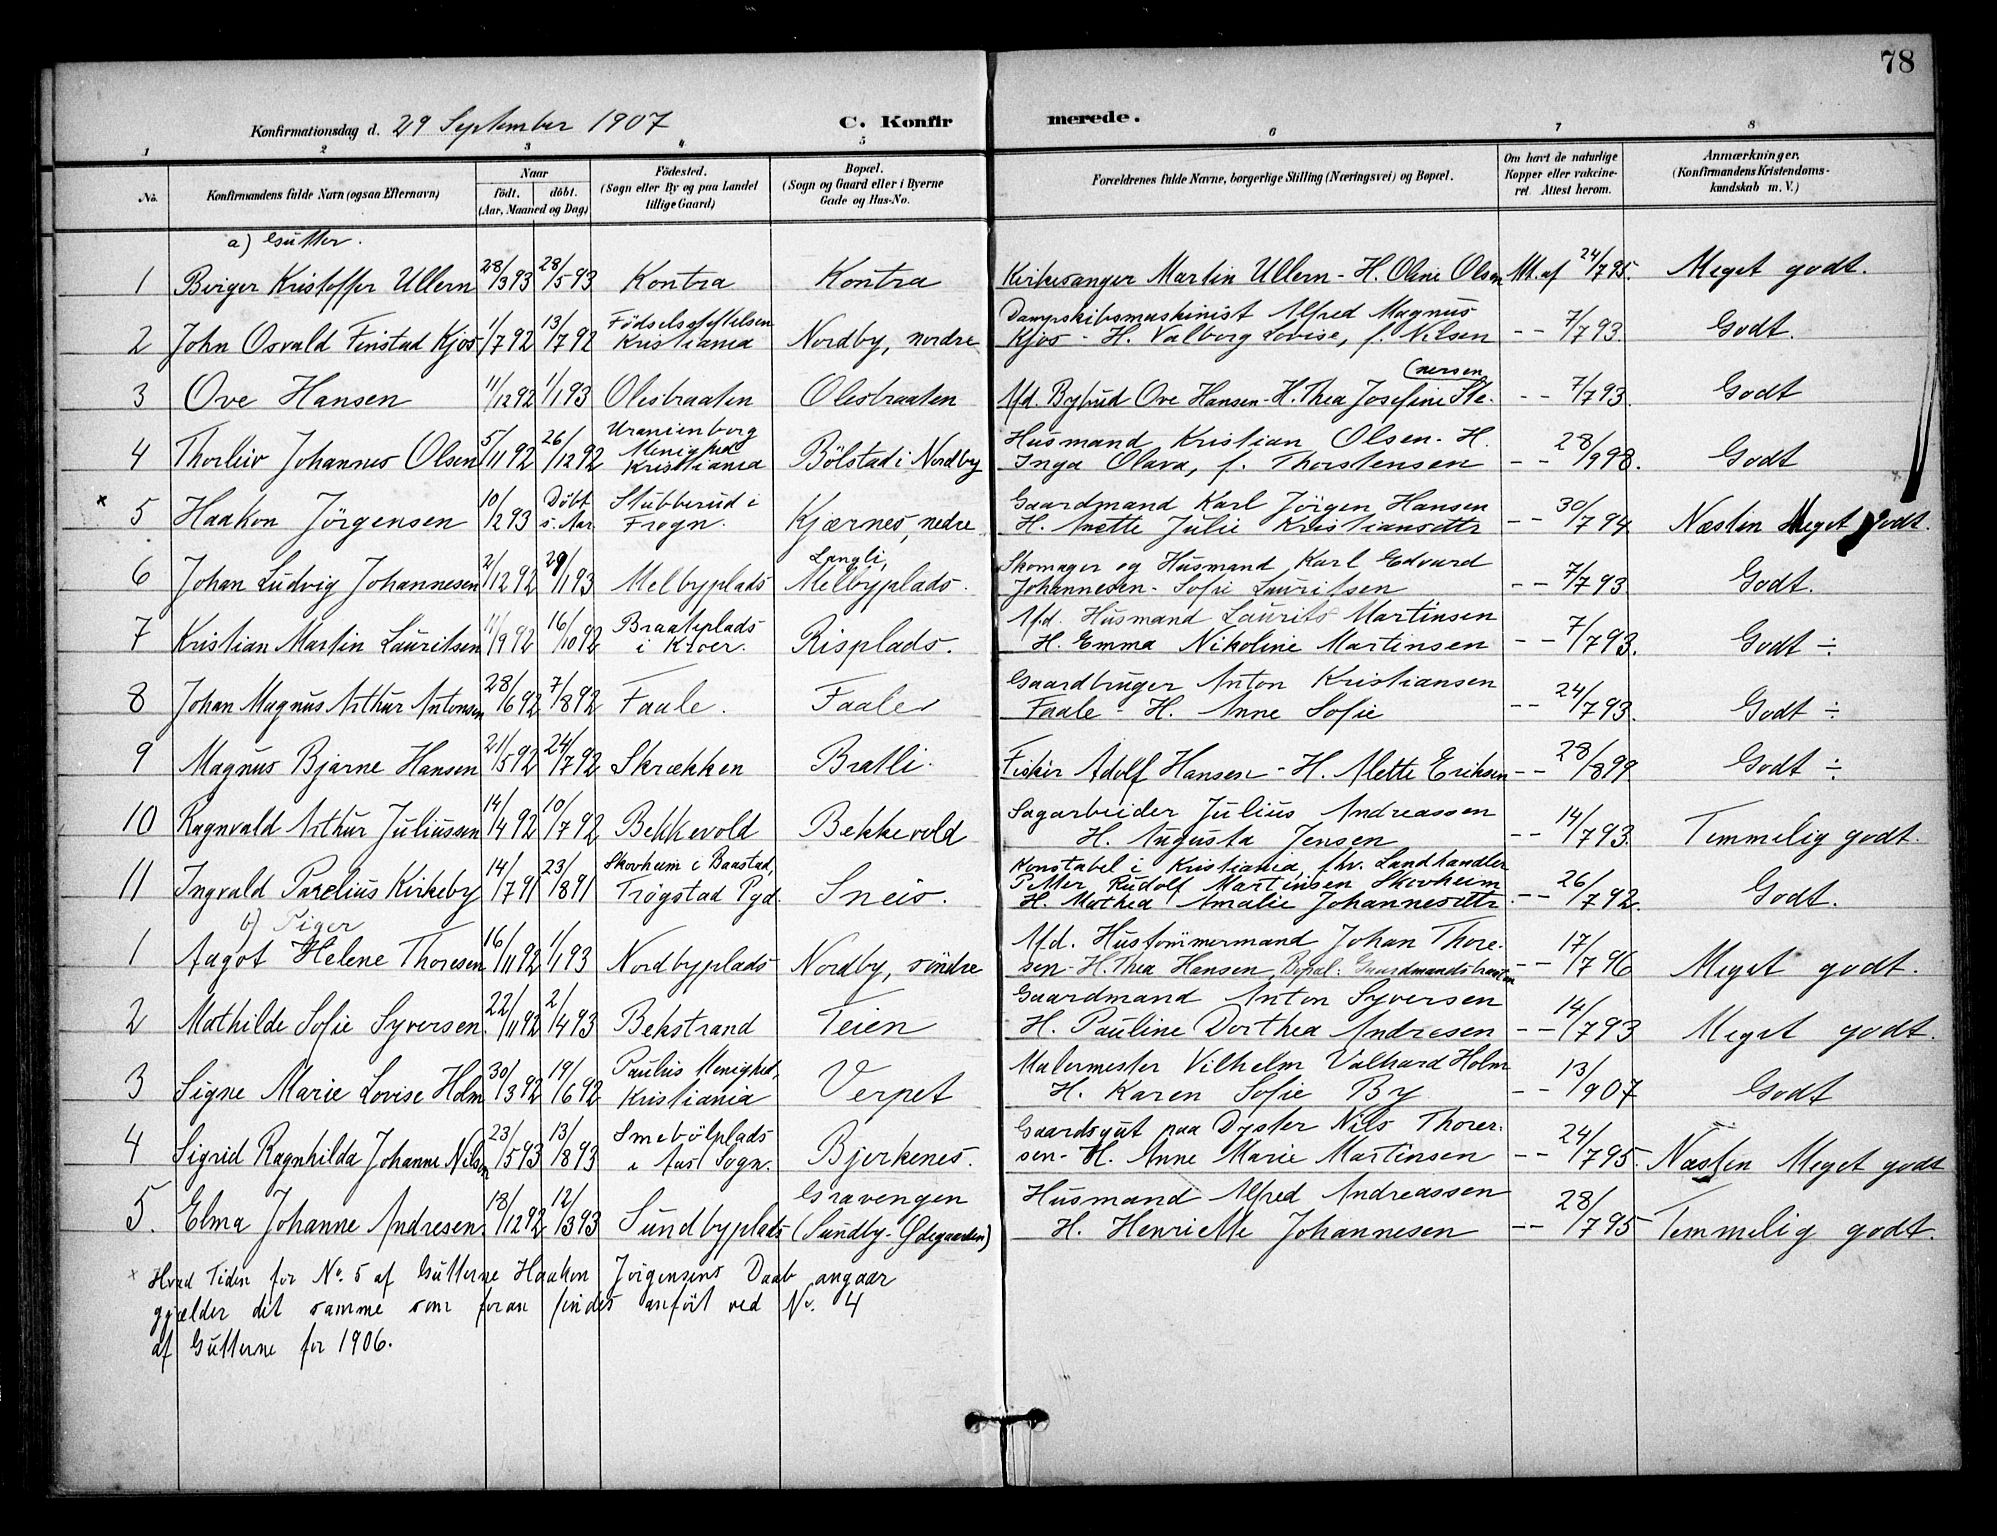 78
Konfirmationsdag d. 29 September 1907 C. Konfirmerede.
1 2 3 4 5 6 7 8
No. Konfirmandens fulde Navn (ogsaa Efternavn) Naar født. døbt. (Aar, Maaned og Dag) Fødested. (Sogn eller By og paa Landet tillige Gaard) Bopæl. (Sogn og Gaard eller i Byerne Gade og Hus-No. Forældrenes fulde Navne, borgerlige Stilling (Næringsvei) og Bopæl. Om havt de naturlige Kopper eller vakcineret. Attest herom. Anmærkninger. (Konfirmandens Kristendomskundskab m. V.)
a) Gutter.
1 Birger Kristoffer Ullern 28/3 93 28/5 93 Kontra Kontra Kirkesanger Martin Ullern - H. Oline Olsen Att. af 24/7 95. Meget godt.
2 John Osvald Finstad Kjos 1/7 92 13/7 92 Fødselsstiftelsen Kristiania Nordby, nordre Dampskibsmaskinist Alfred Magnus
Kjos - H. Valborg Lovise, f. Nilsen - - 7/7 93. Godt.
3 Ove Hansen 11/12 92 1/1 93 Olesbraaten Olesbraaten Afd. Bybud Ove Hansen - H. Thea Josefine Ste-
(nersen - - 7/7 93. Godt
4 Thorleiv Johannes Olsen 5/11 92 26/12 92 Uranienborg Menighed Kristiania Bölstad i Nordby Husmand Kristian Olsen - H.
Inga Olava, f. Thorstensen - - 28/9 98. Godt
× 5 Haakon Jörgensen 10/12 93 Döbt s. Aar Stubberud i Frogn. Kjærnes, nedre Gaardmand Karl Jörgen Hansen
H. Anette Julie Kristiansdttr - - 30/7 94 Næsten Meget godt.
6 Johan Ludvig Johannesen 2/12 92 29/1 93 Melbyplads Langli, Melbyplads. Skomager og Husmand Karl Edvard
Johannesen - Sofie Lauritsen - - 7/7 93. Godt.
7 Kristian Martin Lauritsen 11/9 92 16/10 92 Braateplads i Kroer. Risplads. Afd. Husmand Laurits Martinsen
H. Emma Nikoline Martinsen - - 7/7 93. Godt ÷
8 Johan Magnus Arthur Antonsen 28/6 92 7/8 92 Faale. Faale Gaardbruger Anton Kristiansen
Faale - H. Anne Sofie - - 24/7 93. Godt ÷
9 Magnus Bjarne Hansen 21/5 92 24/7 92 Skrækken Bratli. Fisker Adolf Hansen - H. Alette Eriksen - - 28/8 99 Godt ÷
10 Ragnvald Arthur Juliussen 14/4 92 10/7 92 Bekkevold Bekkevold Sagarbeider Julius Andreassen
H. Augusta Jensen - - 14/7 93. Temmelig godt.
11 Ingvald Parelius Kirkeby 14/7 91 23/8 91 Skovheim i Baastad, Trøgstad Pgd. Sneis. Konstabel i Kristiania, fhv. Landhandler
Petter Rudolf Martinsen Skovheim
H. Mathea Amalie Johannesdttr - - 26/7 92. Godt.
b) Piger
1 Aagot Helene Thoresen 16/11 92 1/1 93 Nordbyplads Nordby, søndre Afd. Hustømmermand Johan Thore-
sen - H. Thea Hansen, Bopæl: Gaardmandsbraaten - - 17/7 96 Meget godt.
2 Mathilde Sofie Syversen. 22/11 92 2/4 93 Bekstrand Teien Gaardmand Anton Syversen
H. Pauline Dorthea Andresen - - 14/7 93 Meget godt.
3 Signe Marie Lovise Holm 30/3 92 19/6 92 Paulus Menighed, Kristiania Verpet Malermester Vilhelm Valhard Holm
H. Karen Sofie By - - 13/9 07 Godt
4 Sigrid Ragnhilda Johanne Nilsen 23/5 93 13/8 93 Smebölplads i Aas Sogn. Bjerkenes. Gaardsgut paa Dyster Nils Thorer-
sen - H. Anne Marie Martinsen - - 24/7 95. Næsten Meget godt
5. Elma Johanne Andresen. 18/12 92 12/3 93 Sundbyplads Gravengen (Sundby-Ødegaarden) Husmand Alfred Andreassen
H. Henriette Johannesen - - 28/7 95 Temmelig godt.
× Hvad Tiden for No. 5 af Gutterne Haakon Jörgensens Daab angaar
gjælder det samme som foran findes anfört ved No. 4
af Gutterne for 1906.